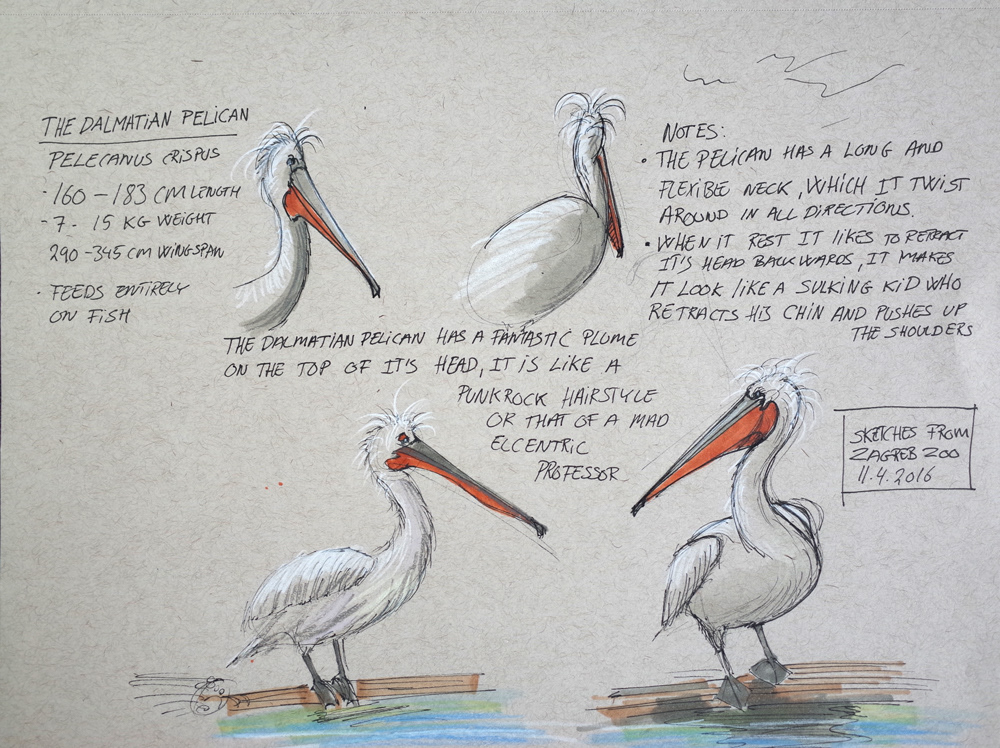 THE DALMATIAN PELICAN
PELECANUS CRISPUS
· 160 – 183 CM LENGTH
- 7 - 15 KG WEIGHT
290 – 345 CM WINGSPAN
· FEEDS ENTIRELY
ON FISH
THE DALMATIAN PELICAN HAS A FANTASTIC PLUME
ON THE TOP OF IT'S HEAD, IT IS LIKE A
PUNKROCK HAIRSTYLE
OR THAT OF A MAD
ECCENTRIC
PROFESSOR
NOTES:
• THE PELICAN HAS A LONG AND
FLEXIBLE NECK, WHICH IT TWIST
AROUND IN ALL DIRECTIONS.
• WHEN IT REST IT LIKES TO RETRACT
IT'S HEAD BACKWARDS, IT MAKES
IT LOOK LIKE A SULKING KID WHO
RETRACTS HIS CHIN AND PUSHES UP
THE SHOULDERS
SKETCHES FROM
ZAGREB ZOO
11.4.2016